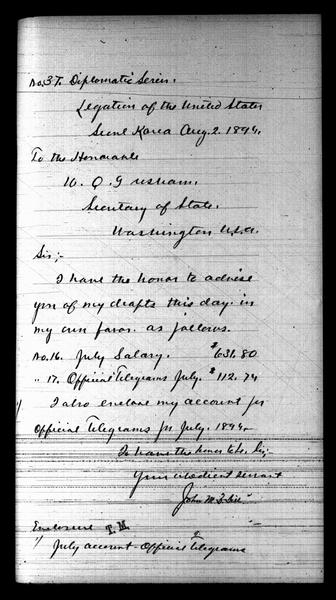 No. 37. Diplomatic Series.
Legation of the United States
Seoul Korea Aug. 2. 1894.
To the Honorable
W. Q. Gresham.
Secretary of State.
Washington U.S.A.
Sir;-
I have the honor to advise
you of my drafts this day. in
my own favor. as follows.
No. 16. July Salary. $631.80
" 17. Official Telegrams July. $112.74
I also enclose my account for
Official Telegrams for July. 1894
I have the honor to be. Sir;-
Your obedient servant
John M. B. Sill
Enclosure
1/ July account - Official Telegrams